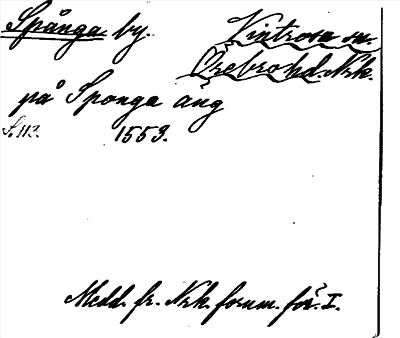 Spånga by. Vintrosa sn.
Örebro hd. Nrk.
på Sponga ang
S. 113. 1553.
Medd. fr. Nrk. fornm. för. I.